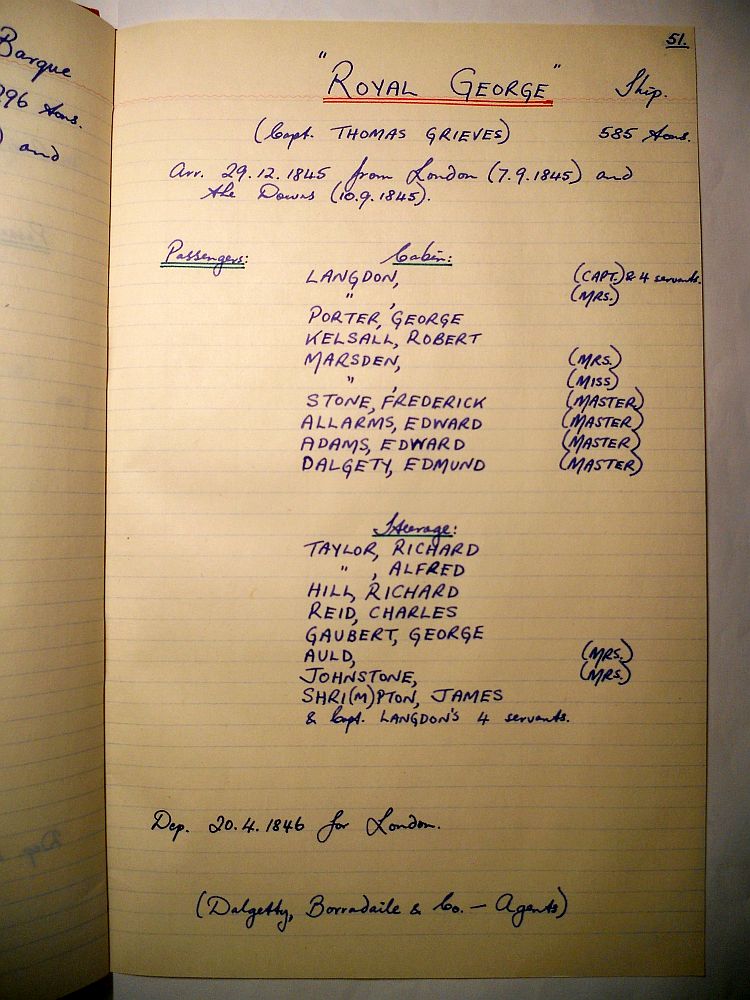 Barque
296 tons.
) and
51.
"ROYAL GEORGE" Ship.
(Capt. THOMAS GRIEVES) 585 tons.
Arr. 29.12.1845 from London (7.9.1845) and
the Downs (10.9.1845).
Passengers: Cabin:
LANGDON, (CAPT.) & 4 servants.
" , (MRS.)
PORTER, GEORGE
KELSALL, ROBERT
MARSDEN, (MRS.)
" , (MISS)
STONE, FREDERICK (MASTER)
ALLARMS, EDWARD (MASTER)
ADAMS, EDWARD (MASTER)
DALGETY, EDMUND (MASTER)
Steerage:
TAYLOR, RICHARD
" , ALFRED
HILL, RICHARD
REID, CHARLES
GAUBERT, GEORGE
AULD, (MRS.)
JOHNSTONE, (MRS.)
SHRI(M)PTON, JAMES
& Capt. LANGDON'S 4 servants.
Dep. 20.4.1846 for London.
(Dalgetty, Borradaile & Co. — Agents)